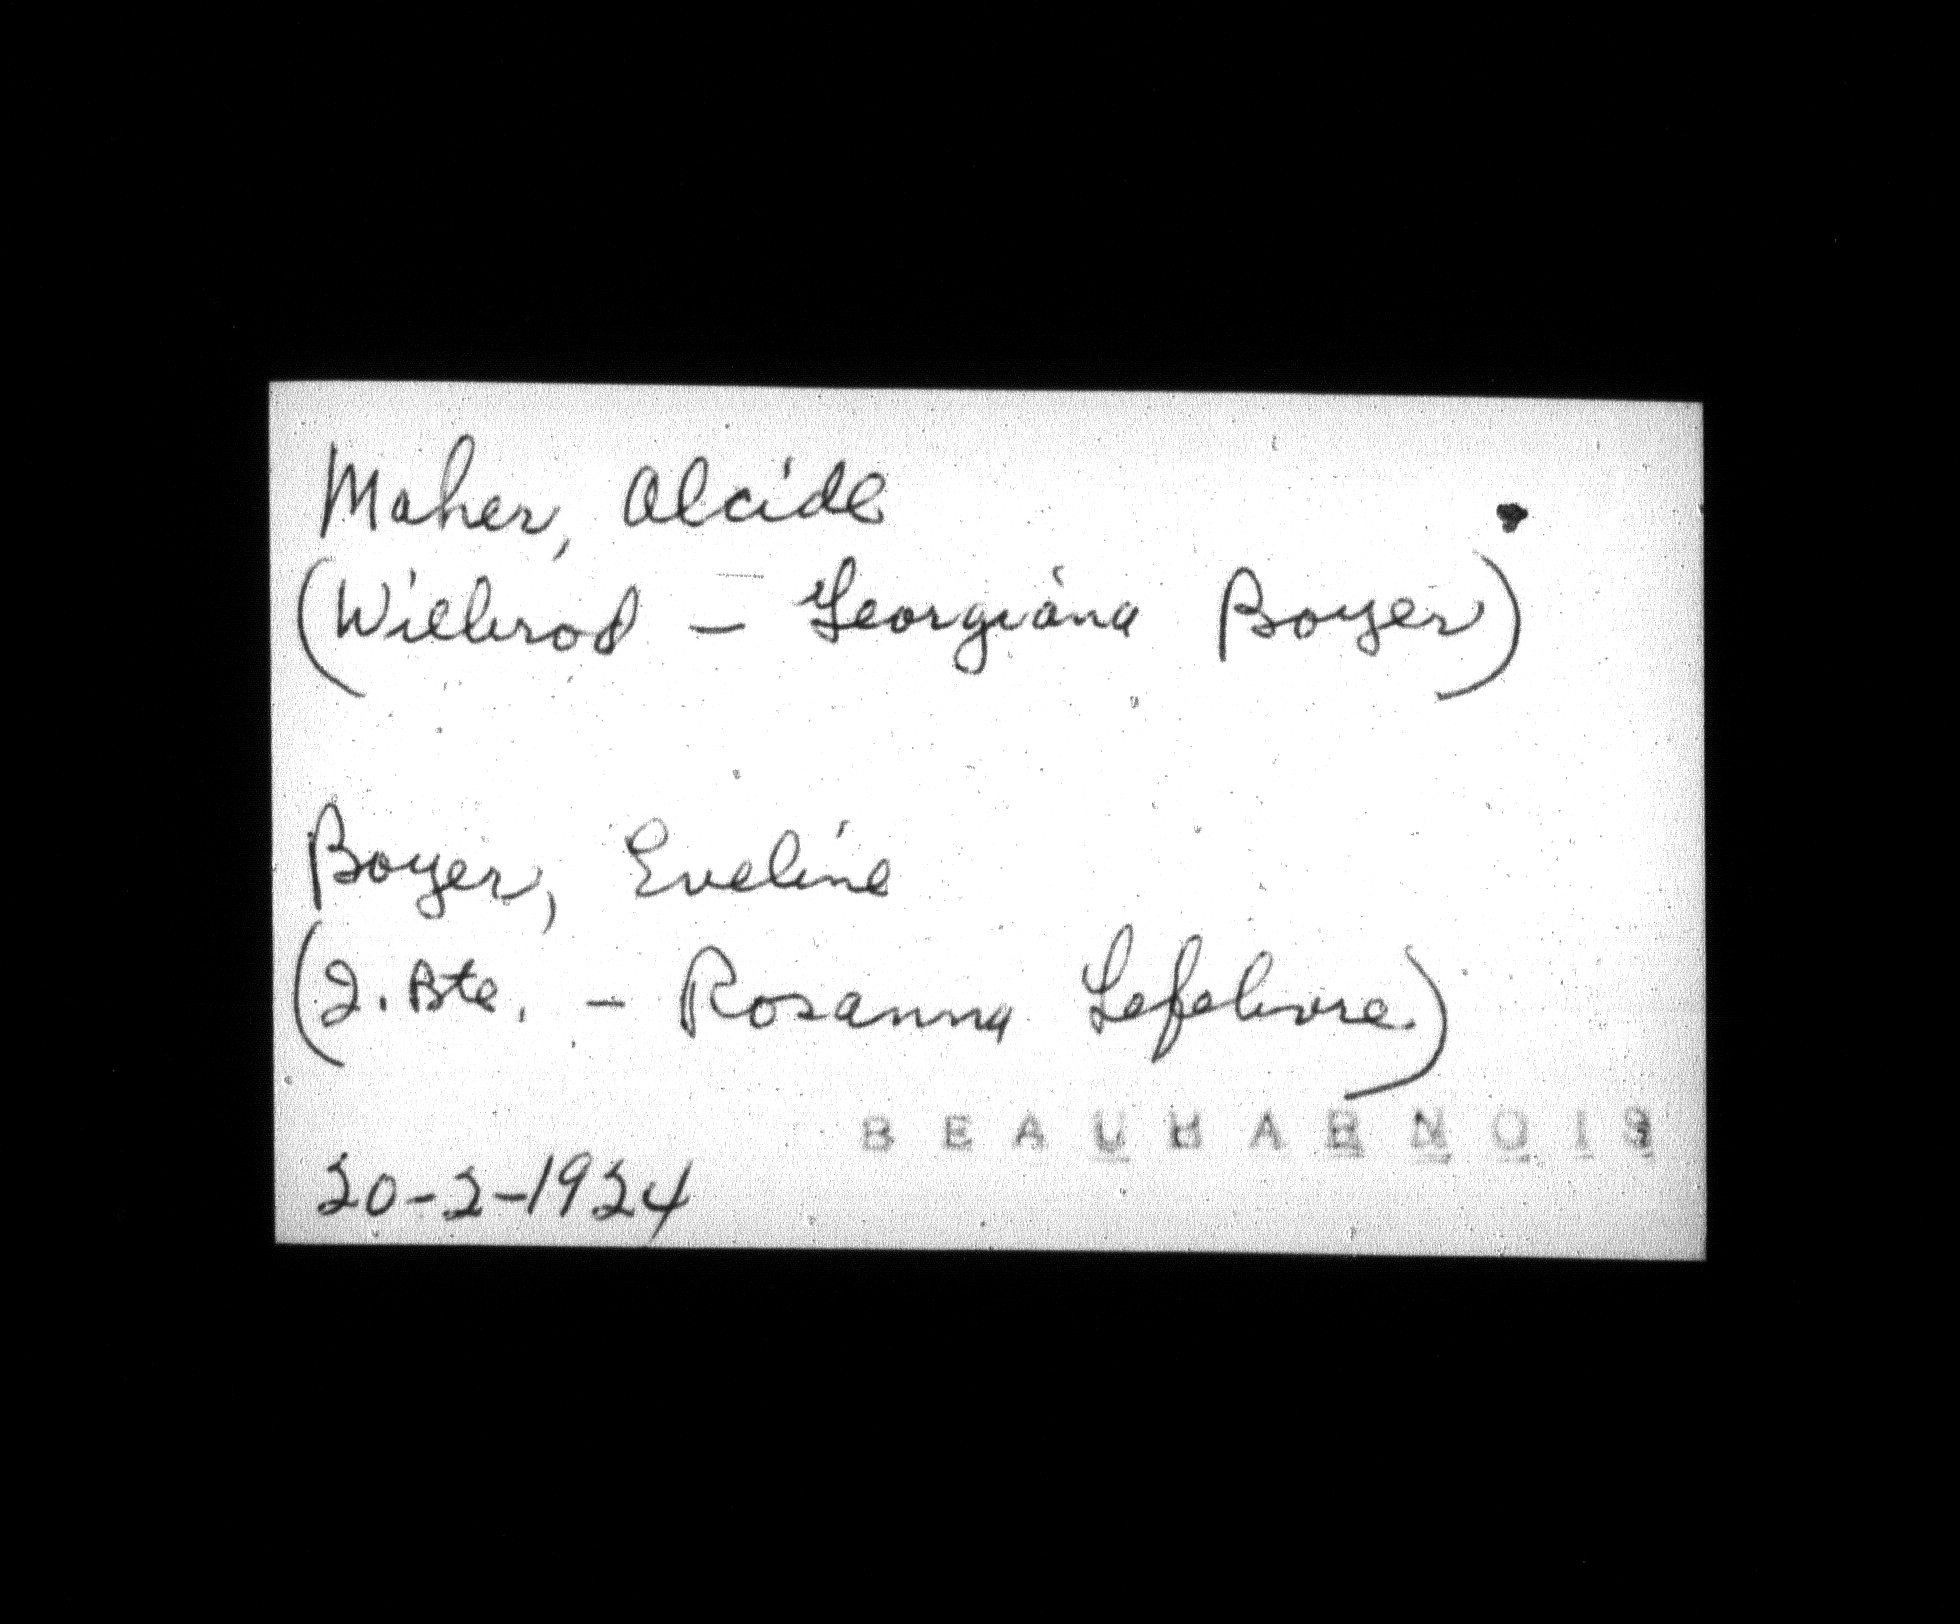 Maher, Alcide
(Wilbrod - Georgiana Boyer)
Boyer, Eveline
(J. Bte. - Rosanna Lefebvre.)
BEAUHARNOIS
20-2-1924